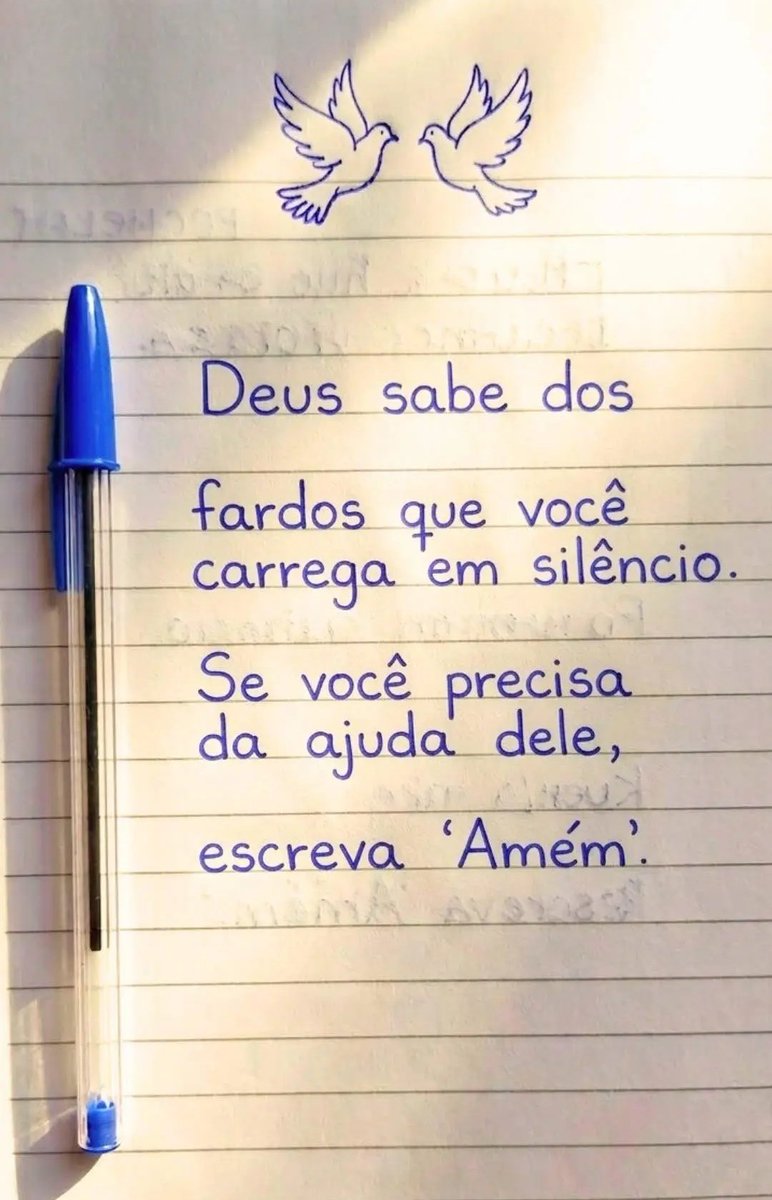 Deus sabe dos
fardos que você
carrega em silêncio.
Se você precisa
da ajuda dele,
escreva ‘Amém’.